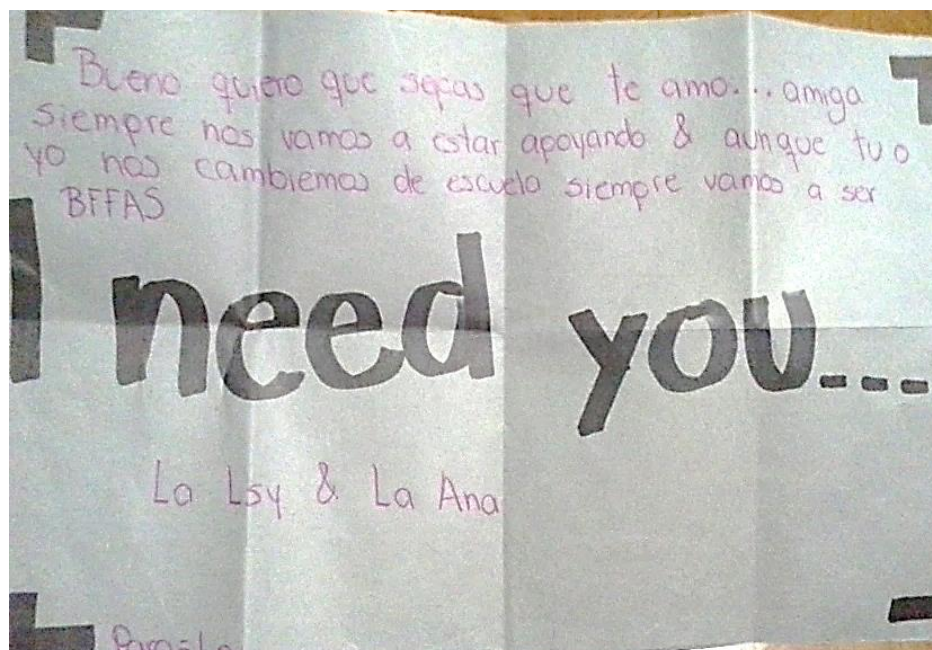 Bueno quiero que sepas que te amo... amiga
siempre nos vamos a estar apoyando & aunque tu o
yo nos cambiemos de escuela siempre vamos a ser
BFFAS
I need you....
La Lsy & La Ana